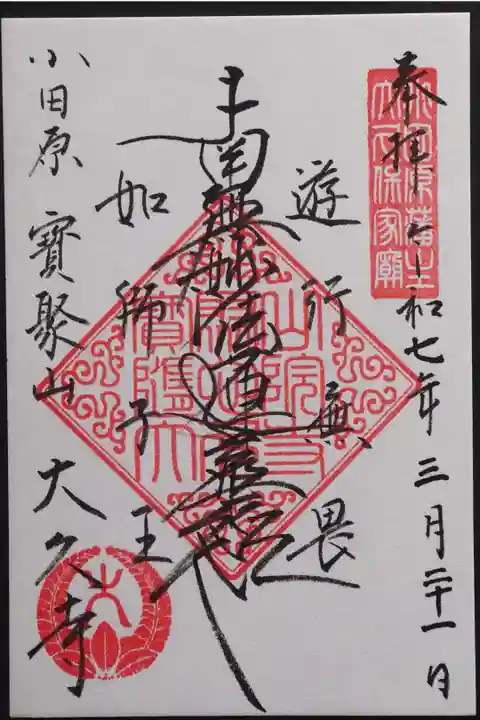 奉拝 令和七年三月二十一日
遊行無畏
南無妙法蓮華経
如師子王
小田原 寶聚山 大久寺